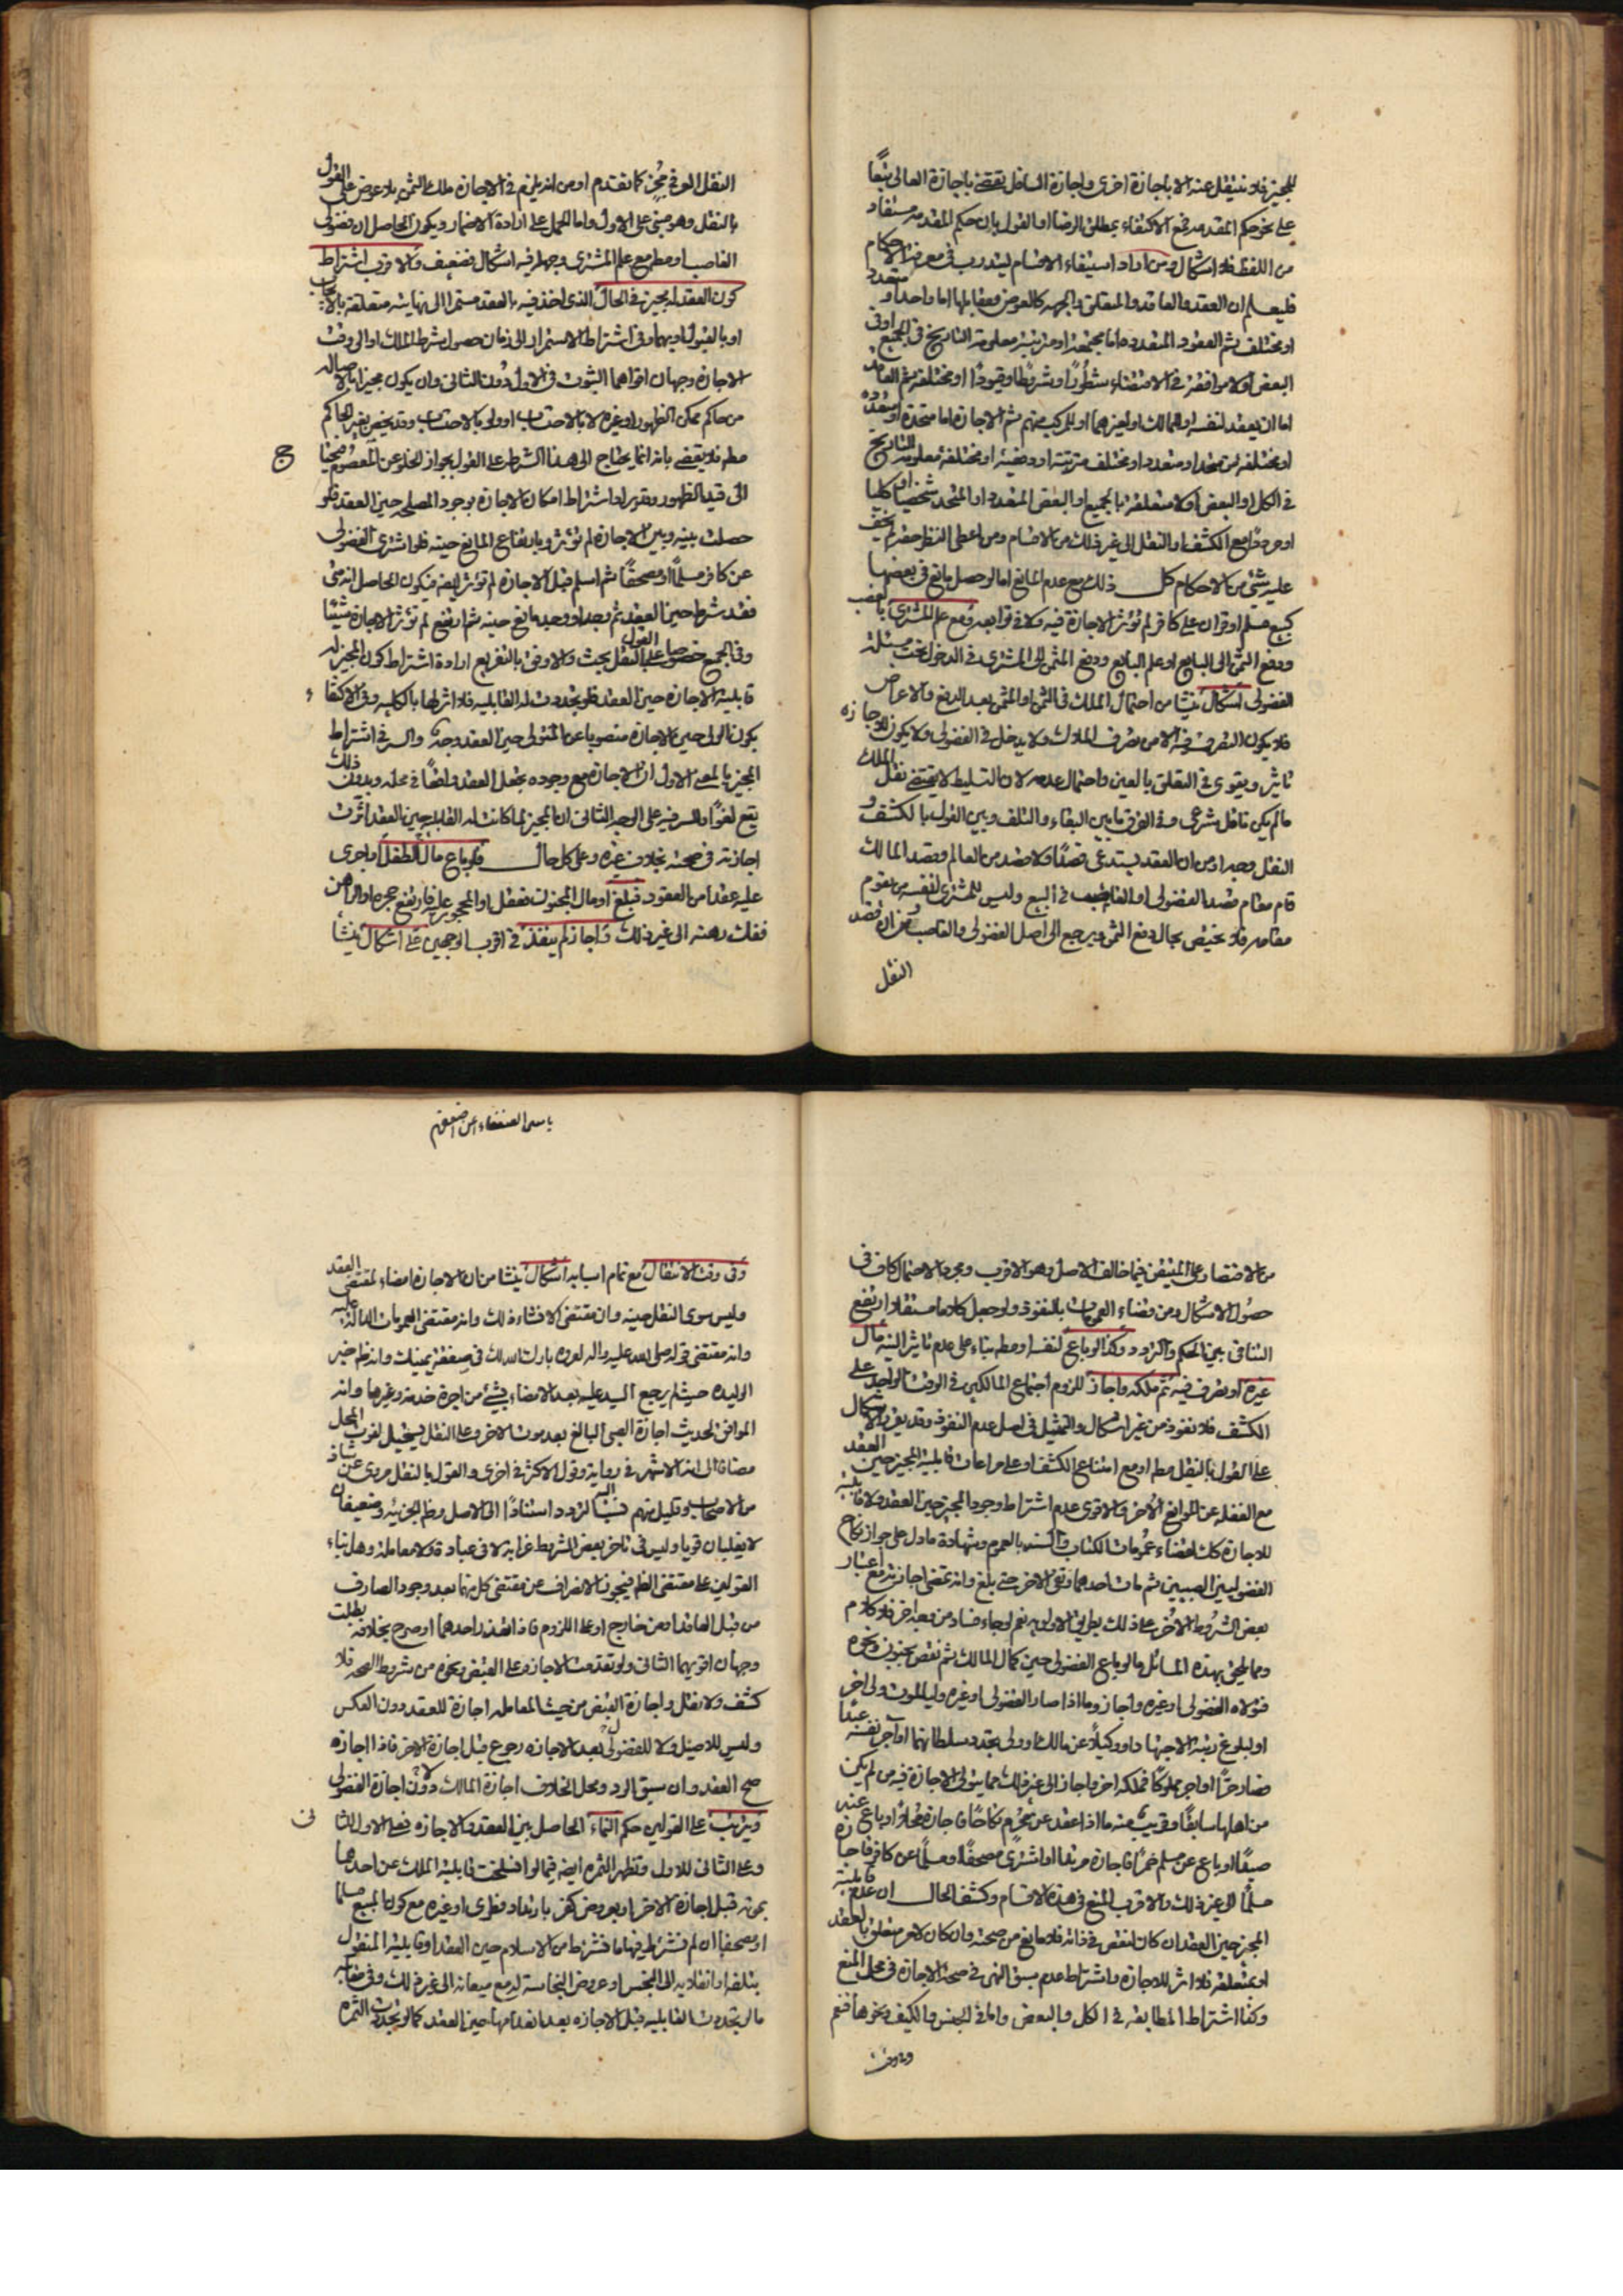 للمجيز فلا ينتقل عنه الا باجازة اخرى واجازة السافل تقتضي باجازة العالى تبعًا
على نحو حكم المقدمه مع الاكتفاء بمطلق الرضا او القول بان حكم المقدمه مستفاد
من اللفظ فلا اشكال ومن اراد استيفاء الاقسام ليتدرب فى معرفة الاحكام
فليعلم ان العقد والعاقد والمتعلق والجهه كالعوض ومقابلها اما واحد او متعدد
او مختلف ثم العقود المتعدده اما مجتمعه او مترتبة معلومة التاريخ فى الجميع او فى
البعض او لا موافقة فى الاقتضاء شطورًا وشروطًا وقيودًا او مختلفة ثم العاقد
اما ان يعقد لنفسه او للمالك او لغيرهما او للمركب منهم ثم الاجازة اما متحدة او متعدده
او مختلفه من متحد او متعدد او مختلف مترتبة او دفعية او مختلفة معلومة التاريخ
فى الكل او البعض او لا متعلقة بالجميع او البعض المتعدد او المتحد شخصيا او كليا
مع الكشف او النقل الى غير ذلك من الاقسام ومن اعطى النظر حقه لم يخف
عليه شئ من الاحكام كل ذلك مع عدم المانع اما لو حصل مانع فى بعضها
كبيع مسلم او قران على كافر لم تؤثر الاجازة فيه ولا فى توابعه ومع علم المشترى بالغصب
ودفع الثمن الى البايع او علم البايع ودفع المثمن الى المشترى فى الدخول تحت مسئلة
الفضولى اشكال ينشا من احتمال الملك فى الثمن او المثمن بعد الدفع والاعراض
فلا يكون التصرف فيه الا من تصرف الملاك ولا يدخل فى الفضولى ولا يكون للاجازه
تاثير ويقوى فى التعلق بالعين واحتمال عدمه لان التسليط لا يقتضى نقل الملك
ما لم يكن ناقل شرعى وفى الفرق ما بين البقاء والتلف وبين القول بالكشف و
النقل وجه او من ان العقد يستدعى قصدًا ولا قصد من العالم وقصد المالك
قام مقام قصد الفضولى او الغاصب فى البيع وليس للمشترى لنفسه من يقوم
مقامه فلا يختص بحال دفع الثمن ويرجع الى اصل الفضولى والغاصب
النقل
النقل العوفى كما تقدم او من انه يلزم فى الاجازه ملك الثمن بلا عوض على القول
بالنقل وهو مبنى على الاول واما الحمل على ارادة الاضمار ويكون الحاصل ان فضولى
الغاصب او مطم مع علم المشترى وجهله فيه اشكال فضعيف والاقرب اشتراط
كون العقد له مجيز فى الحال الذى اخذ فيه بالعقد مستمرا الى نهايته متعلقة بالايجاب
او بالقبول او بهما وفى اشتراط الاستمرار الى زمان حصول شرط الملك او الى وقت
الاجازه وجهان اقواهما الثبوت فى الاول دون الثانى وان يكون مجيزا بالاصاله
من حاكم ممكن الظهور او غيره لا بالاحتساب او ولى بالاحتساب وقد يخص بغير الحاكم
مطم فلا يقضى بانه انما يحتاج الى هذا الشرط على القول بجواز الخلو عن المعصوم
الى قيد الظهور وتقرير له اشتراط امكان الاجازه بوجود المصلحه حين العقد فلو
حصلت بينه وبين الاجازة لم تؤثر وبارتفاع المانع حينه فلو اشترى الفضولى
عن كافر مسلمًا او مصحفًا ثم اسلم قبل الاجازه لم تؤثر ايضه فيكون الحاصل انه متى
فقد شرط حين العقد ثم وجد او وجد مانع حينه ثم ارتفع لم تؤثر الاجازة شيئًا
وفى الجميع خصوصا على القول بالنقل بحث والاوفق بالتفريع ارادة اشتراط كون المجيز له
قابلية الاجازه حين العقد فلو تجددت له القابليه فلا اثر لها بالكليه وفى الاكتفاء
بكون الولى حين الاجازه منصوبا عن المتولى حين العقد وجه والسر فى اشتراط
المجيز بالمعنى الاول ان الاجازه مع وجوده تجعل العقد واقعًا فى محله وبدون ذلك
يقع لغوًا والسر فيه على الوجه الثانى ان المجيز لما كانت له القابليه حين العقد اثرت
اجازته فى صحته بخلاف غيره وعلى كل حال فلو باع مال الطفل او اجرى
عليه عقدا من العقود فبلغ او مال المجنون فعقل او المحجور عليه فارتفع حجره او الراهن
ففك رهنه الى غير ذلك واجاز لم ينفذ فى اقرب الوجهين على اشكال ينشأ
من الاقتصار على المتيقن فيما خالف الاصل وهو الاقرب ومجرد الاحتمال كاف فى
حصول الاشكال ومن قضاء العمومات بالنفوذ ولو جعل كلاما مستقلا ارتفع
التنافى بين الحكم والتردد وكذا لو باع لنفسه او مطم بناء على عدم تاثير النيه مال
غيره او تصرف فيه ثم ملكه واجاز للزوم اجتماع المالكين فى الوقت الواحد على
الكشف فلا نفوذ من غير اشكال والتمثيل فى اصل عدم النفوذ وقد يقرر الاشكال
على القول بالنقل مطم او مع امتناع الكشف او على مراعات قابلية المجيز حين العقد
مع الغفله عن الموانع الأخر والاقوى عدم اشتراط وجود المجيز حين العقد ولا قابليته
للاجازه كل ذلك لقضاء عمومات الكتاب والسنه بالعموم وشهادة ما دل على جواز نكاح
الفضوليين الصبيين ثم مات احدهما وبقى الاخر حتى بلغ وانه تمضى اجازته مع اعتبار
بعض الشروط الأخر على ذلك بطريق الاولويه نعم لو جاء فساد من وجه اخر فلا كلام
ومما يلحق بهذه المسائل ما لو باع الفضولى حين كمال المالك ثم نقص بجنون ونحوه
فتولاه الفضولى او غيره واجاز وما اذا صار الفضولى او غيره وليا لموت ولى اخر
او لبلوغ رتبة الاجتهاد او وكيلًا عن مالك او ولى تجدد سلطانهما او اجر نفسه عبدًا
فصار حرًا او اجر مملوكًا فملكه اخر واجاز الى غير ذلك مما يتولى الاجازة فيه من لم يكن
من اهلها سابقًا وقريب منه ما اذا عقد عن محرم نكاحًا فاجازه محلًا او باع عنه
صيدًا او باع عن مسلم خمرًا فاجازه مرتدا او اشترى مصحفًا او مسلمًا عن كافر فاجازه
مسلمًا الى غير ذلك والاقرب المنع فى هذه الاقسام وكشف الحال ان عدم قابلية
المجيز حين العقد ان كان لنقص فى ذاته فلا مانع من صحته وان كان لامر متعلق بالعقد
او بمتعلقه فلا اثر للاجازه واشتراط عدم سبق النهى فى صحة الاجازة فى محل المنع
وكذا اشتراط المطابقه فى الكل والبعض والجنس والكيف ونحوها فنعم
وفى وقت
باسم الضعفاء
وفى وقت الانتقال مع تمام اسبابه اشكال ينشا من ان الاجازة امضاء لمقتضى العقد
وليس سوى النقل حينه وان مقتضى الانشاء ذلك وانه مقتضى العمومات الداله عليه
وانه مقتضى قوله صلى الله عليه واله لعروه بارك الله لك فى صفقة يمينك وانه ظم خبر
الوليده حيث لم يرجع السيد عليه بعد الامضاء بشئ من اجرة خدمة وغيرها وانه
الموافق لحديث اجازة الصبى البالغ بعد موت الاخر وعلى النقل يستحيل لفوت المحل
مضافا الى انه الاشهر فى رواية وقول الاكثر فى اخرى والقول بالنقل مروى عن شاذ
من الاصحاب وقليل منهم نسب اليه التردد استنادًا الى الاصل وظم الجزئيه وضعيفان
لا يغلبان قويا وليس فى تاخر بعض الشروط غرابه لا فى عبادة ولا معاملة وهل بناء
القولين على مقتضى الظم فيجوز الانصراف عن مقتضى كل منهما بعد وجود الصارف
من قبل العاقد او من خارج او على اللزوم فاذا قصد احدهما او صرح بخلافه بطلت
وجهان اقويهما الثانى ولو تقدمت الاجازه على القبض ونحوه من شروط الصحه فلا
كشف ولا نقل واجازة القبض من حيث المعامله اجازة للعقد دون العكس
وليس للاصيل ولا للفضولى بعد الاجازه رجوع قبل اجازة الاخر فاذا اجازه
صح العقد وان سبق الرد ومحل الخلاف اجازة المالك لا دون اجازة الفضولى
ويترتب على القولين حكم النماء الحاصل بين العقد والاجازه فعلى الاول للثانى
وعلى الثانى للاول وتظهر الثمره ايضه فيما لو انسلخت قابلية الملك عن احدهما
بموته قبل اجازة الاخر او بعروض كفر بارتداد فطرى او غيره مع كون المبيع مسلما
او مصحفا ان لم نشترط فيهما ما نشترط من الاسلام حين العقد او قابلية المنقول
بتلفه او انقلابه الى النجس او عروض النجاسة له مع ميعانه الى غير ذلك وفى مقابله
ما لو تجددت القابليه قبل الاجازه بعد انعدامها حين العقد كما لو تجددت الثمره